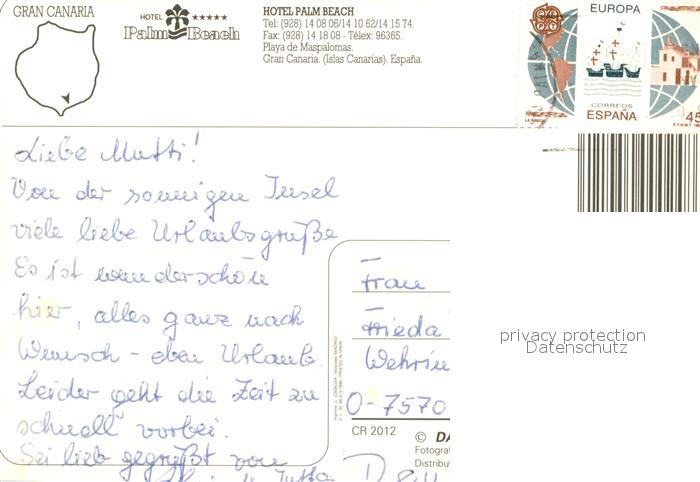 GRAN CANARIA
HOTEL ★★★★★
Palm Beach
HOTEL PALM BEACH
Tel: (928) 14 08 06/14 10 62/14 15 74.
Fax: (928) 14 18 08 - Télex: 96365.
Playa de Maspalomas.
Gran Canaria. (Islas Canarias). España.
EUROPA
CORREOS
ESPAÑA
45
LA RABIDA
Liebe Mutti!
Von der sonnigen Insel
viele liebe Urlaubsgrüße
Es ist wunderschön
hier, alles ganz nach
Wunsch - eben Urlaub.
Leider geht die Zeit zu
schnell vorbei.
Sei lieb gegrüßt von
Jutta
Frau
Frieda
Wehrin
O-7570
CR 2012
© DA
Fotograf
Distribu
privacy protection
Datenschutz